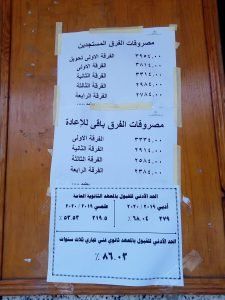 مصروفات الفرق المستجدين
٣٩٥٤.٠٠ الفرقة الاولى تحويل
٣٨١٤.٠٠ الفرقة الاولى
٣٣١٤.٠٠ الفرقة الثانية
٢٩٨٤.٠٠ الفرقة الثالثة
٢٧٨٤.٠٠ الفرقة الرابعة
مصروفات الفرق باقى للاعادة
٣٣٣٤.٠٠ الفرقة الاولى
٢٩١٤.٠٠ الفرقة الثانية
٢٥٨٤.٠٠ الفرقة الثالثة
٢٣٨٤.٠٠ الفرقة الرابعة
الحد الأدنى للقبول بالمعهد الثانوية العامة
أدبى ٢٠١٩ / ٢٠٢٠ علمى ٢٠١٩ / ٢٠٢٠
٢٧٩ ٦٨.٠٤ % ٢١٩.٥ ٥٣.٥٣ %
الحد الأدنى للقبول بالمعهد ثانوى فنى تجارى ثلاث سنوات
٨٦.٠٣ %